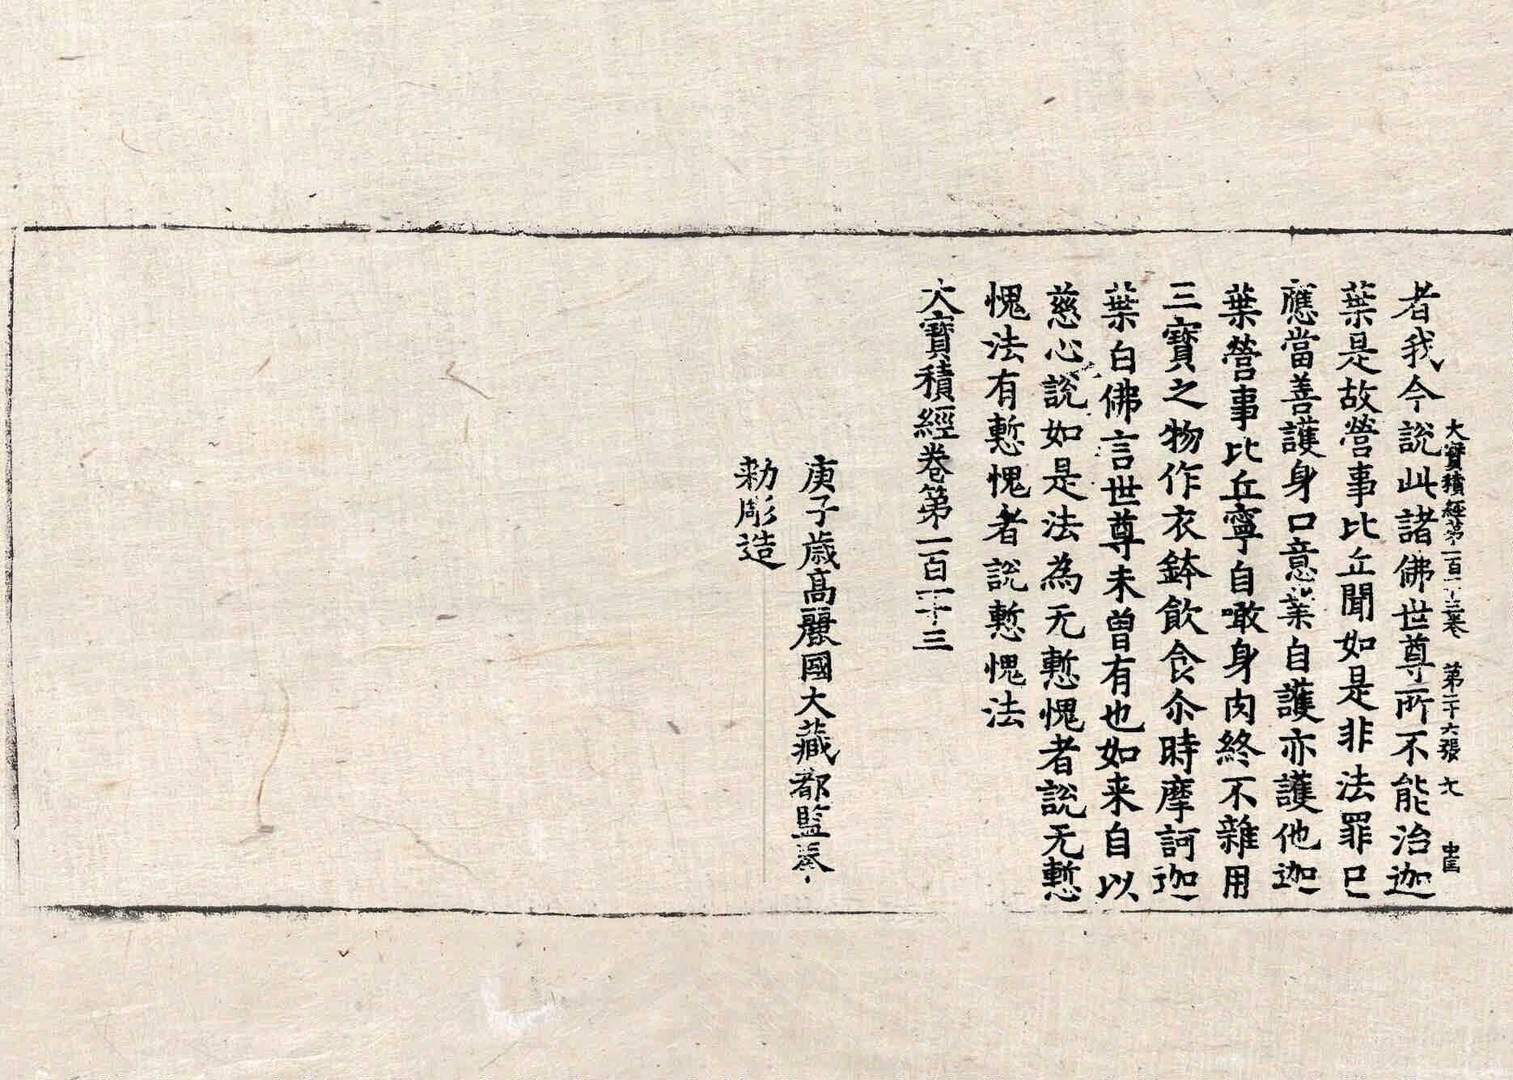 大寶積經第一百一十三卷　第二十六張　九　中匡
者我今說此諸佛世尊所不能治迦
葉是故營事比丘聞如是非法罪已
應當善護身口意業自護亦護他迦
葉營事比丘寧自噉身肉終不雜用
三寶之物作衣鉢飲食尒時摩訶迦
葉白佛言世尊未曾有也如来自以
慈心說如是法為无慙愧者說无慙
愧法有慙愧者說慙愧法
大寶積經卷第一百一十三
庚子歳高麗國大藏都監奉
勑彫造